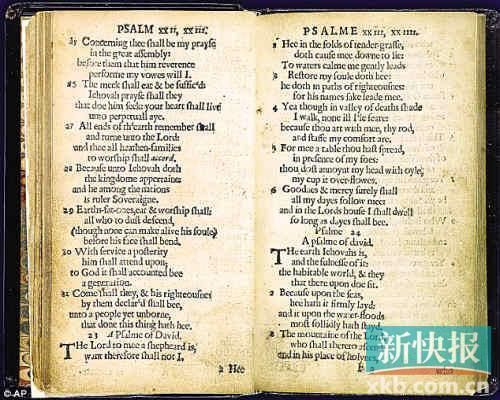 PSALM xxii, xxiii.
25 Concerning thee shall be my prayse
in the great assembly:
before them that him reverence
performe my vowes will I.
26 The meek shall eat & be suffic'd
Iehovah prayse shall they
that doe him seek: your heart shall live
unto perpetuall aye.
27 All ends of th'earth remember shall
and turne unto the Lord:
and thee all heathen-families
to worship shall accord.
28 Because unto Iehovah doth
the kingdome appertaine:
and he among the nations
is ruler Soveraigne.
29 Earths-fat-ones, eat & worship shall:
all who to dust descend,
(though none can make alive his soule)
before his face shall bend.
30 With service a posterity
him shall attend upon;
to God it shall accounted bee
a generation.
31 Come shall they, & his righteousnes
by them declar'd shall bee,
unto a people yet unborne,
that done this thing hath hee.
23 A Psalme of David.
The Lord to mee a shepheard is,
want therefore shall not I,
2 Hee
PSALME xxiii, xxiiii.
2 Hee in the folds of tender-grasse,
doth cause mee downe to lie:
To waters calme me gently leads
3 Restore my soule doth hee:
he doth in paths of righteousnes:
for his names sake leade mee.
4 Yea though in valley of deaths shade
I walk, none ill I'le feare:
because thou art with mee, thy rod,
and staffe my comfort are.
5 For mee a table thou hast spread,
in presence of my foes:
thou dost annoynt my head with oyle,
my cup it over-flowes.
6 Goodnes & mercy surely shall
all my dayes follow mee:
and in the Lords house I shall dwell
so long as dayes shall bee.
Psalme 24
A psalme of david.
The earth Iehovahs is,
and the fulnesse of it:
the habitable world, & they
that there upon doe sit.
2 Because upon the seas,
hee hath it firmly layd:
and it upon the water-floods
most sollidly hath stayd.
3 The mountaine of the Lord,
who shall thereto ascend
and in his place of holynes,
© AP
新快报
xkb.com.cn